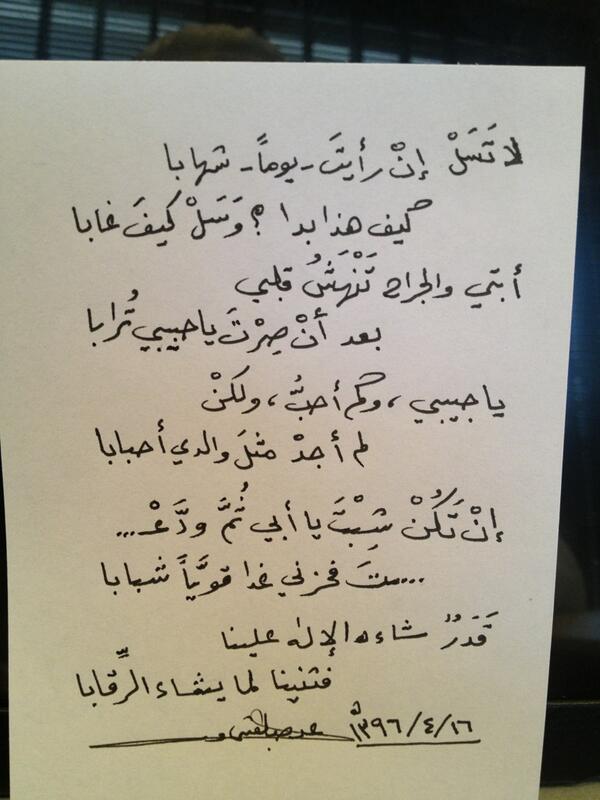 لا تَسَلْ إنْ رأيتَ - يوماً - شهابا
كيف هذا بدا ؟ وَسَلْ كيفَ غابا
أبتي والجراح تَنْهَشُ قلبي
بعد أنْ صِرْتَ يا حبيبي تُرابا
يا حبيبي ، وكم أحبُّ ، ولكنْ
لم أجدْ مثلَ والدي أحبابا
إنْ تَكُنْ شِبْتَ يا أبي ثُمَّ ودَّعْـ...
...ـتَ فحزني غدا قويَّاً شبابا
قَدَرٌ شاءه الإله علينا
فثنينا لما يشاء الرِّقابا
١٣٩٦/٤/١٦ هـ